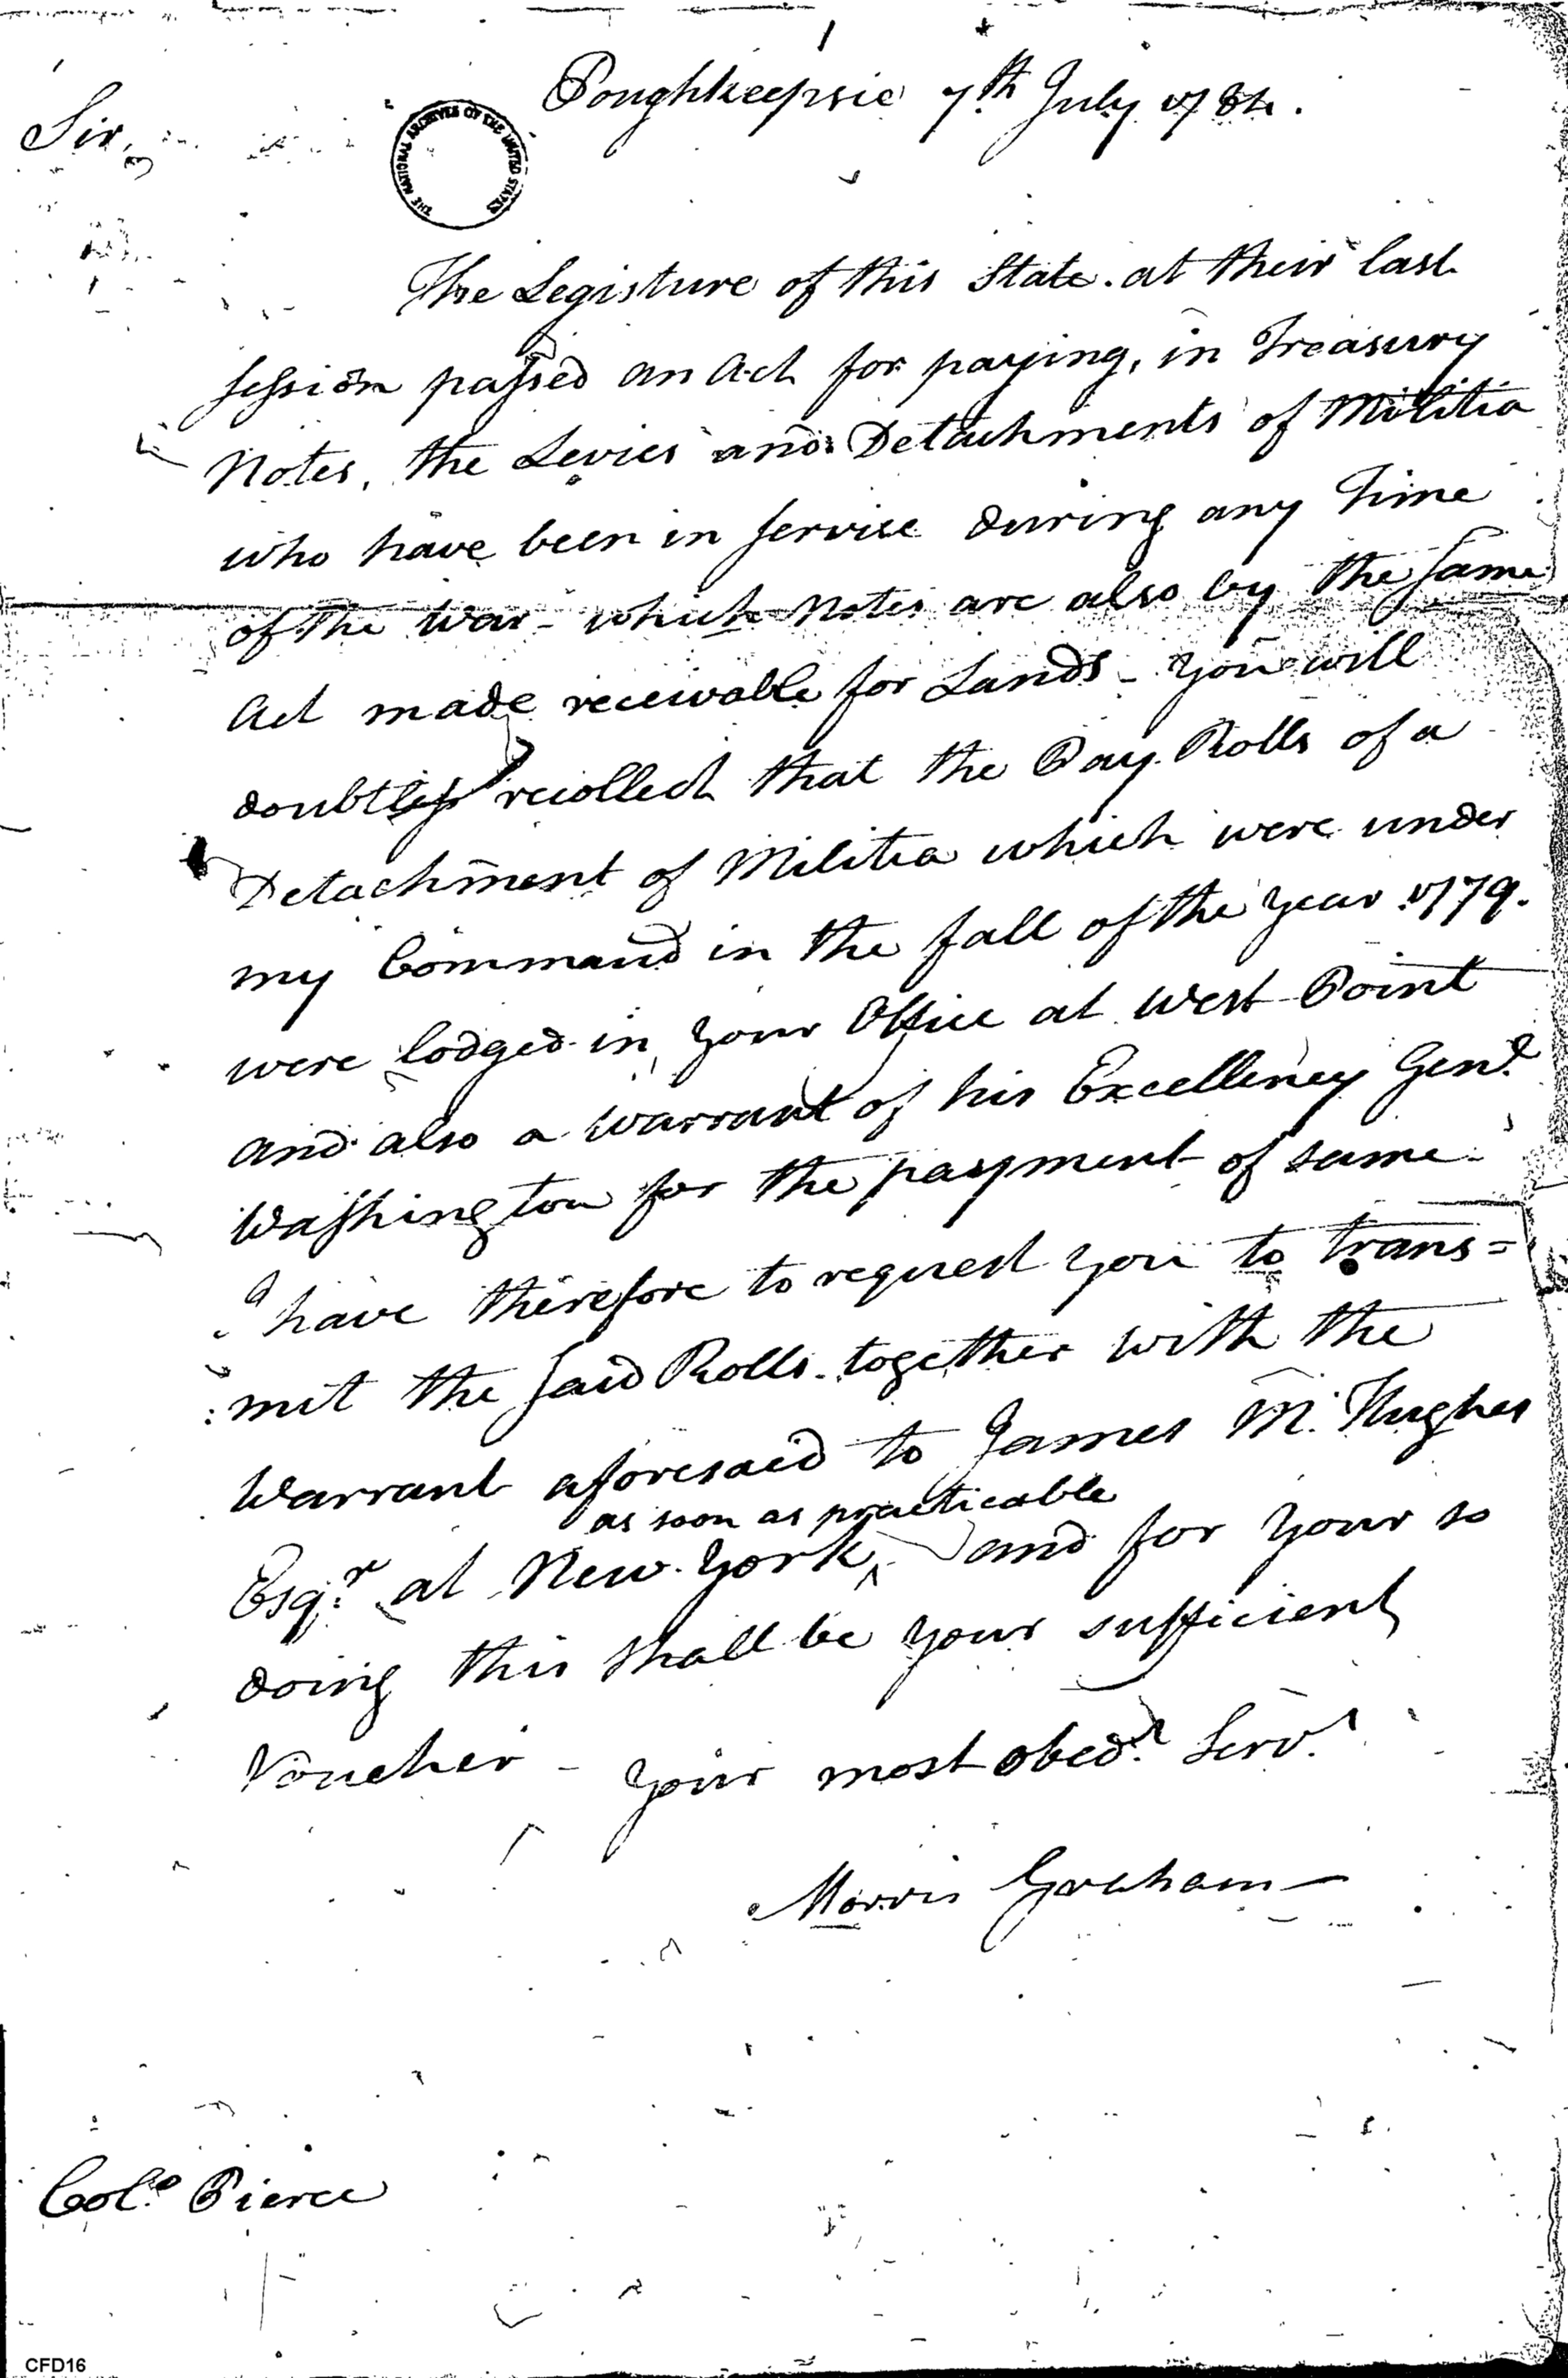 Poughkeepsie 7th July 1784.
Sir,
THE NATIONAL ARCHIVES OF THE UNITED STATES
The Legisture of this State at their last
session passed an Act for paying, in Treasury
Notes, the Levies and Detachments of Militia
who have been in servise during any Time
of the War - which Notes are also by the same
Act made receivable for Lands - you will
doubtless recollect that the Pay Rolls of a
Detachment of Militia which were under
my Command in the fall of the year 1779.
were lodged in your Office at West Point
and also a warrant of his Excellency Genl.
Washington for the payment of same.
I have therefore to request you to trans=
mit the said Rolls together with the
Warrant aforesaid to James M. Hughes
as soon as practicable
Esqr. at New York ^ and for your so
doing this shall be your sufficient
Voucher - your most obedt. Servt.
Morris Graham
Colo. Pierce
CFD16